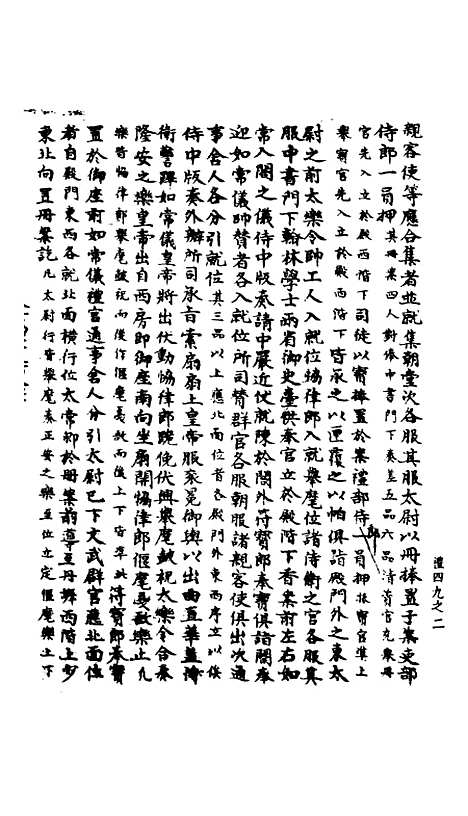 禮四九之二
親客使等應合集者並就集朝堂次各服其服太尉以冊捧置于案吏部
侍郎一員押其冊案四人對捧中書門下奏差五品六品清資官充案冊
官先入立於殿西階下司徒以寶捧置於案禮部侍郎一員押捧寶官準上
舉寶官先入立於殿西階下皆承之以匣覆之以帕俱詣殿門外之東太
尉之前太樂令帥工人入就位協律郎入就舉麾位諸侍衛之官各服其
服中書門下翰林學士兩省御史臺供奉官立於殿階下香案前左右如
常入閤之儀侍中版奏請中嚴近仗就陳於閤外符寶郎奉寶俱詣閤奉
迎如常儀帥贊者各入就位所司贊群官各服朝服諸親客使俱出次通
事舍人各分引就位其三品以上應北面位者各殿門外東西序立以俟
侍中版奏外辦所司承旨索扇扇上皇帝服袞冕御輿以出曲直華蓋
衛警蹕如常儀皇帝將出仗動協律郎跪俛伏興舉麾鼓柷太樂令合奏
隆安之樂皇帝出自西房即御座南向坐扇開協律郎偃麾戛敔樂止凡
樂皆協律郎舉麾鼓柷而後作偃麾戛敔而後上下皆準此符寶郎奉寶
置於御座前如常儀禮官通事舍人分引太尉已下文武群官應北面位
者自殿門東西各就北面橫行位太常卿於冊案前導至丹墀西階上少
東北向置冊案訖凡太尉行皆舉麾奏正安之樂至位立定偃麾樂上下